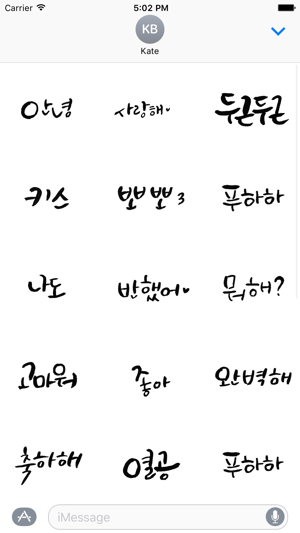 Carrier 5:02 PM
KB
Kate
안녕 사랑해♥ 두근두근
키스 뽀뽀3 푸하하
나도 반했어♥ 뭐해?
고마워 좋아 완벽해
축하해 열공 푸하하
iMessage